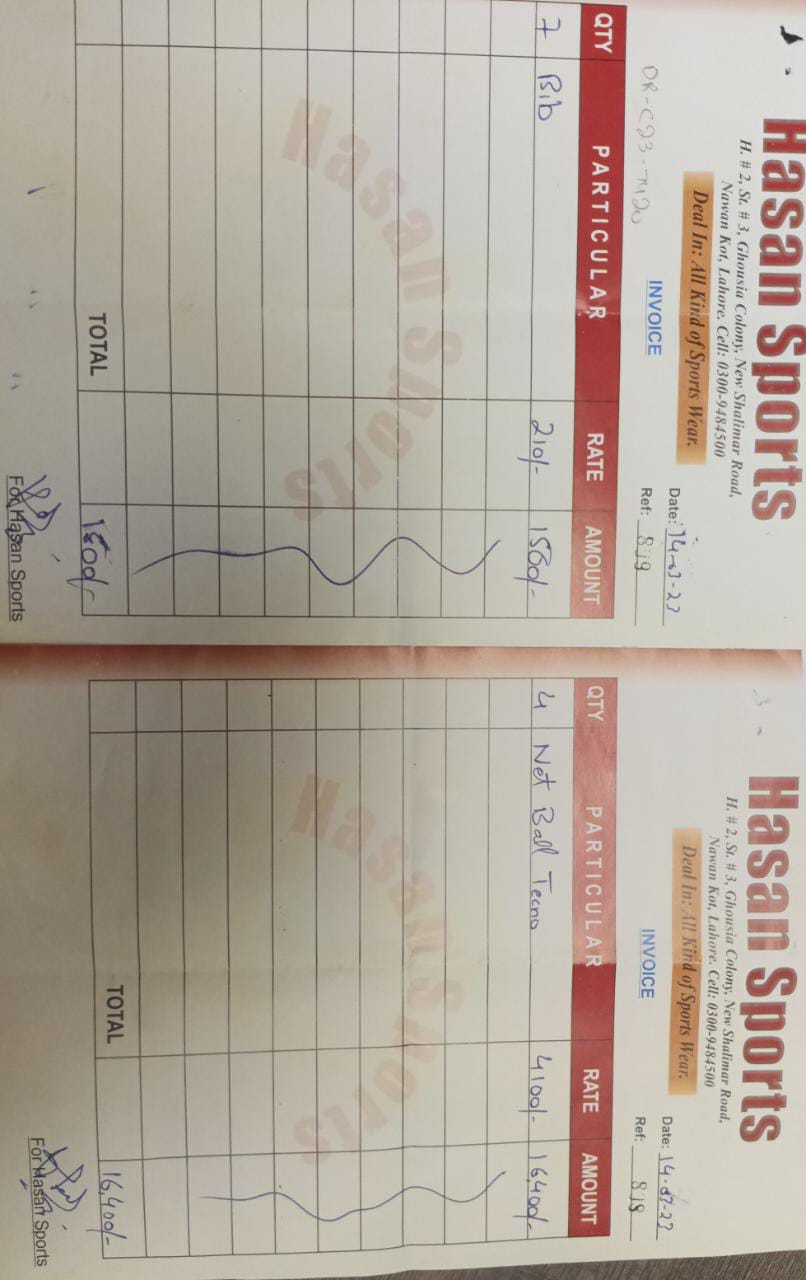 Hasan Sports
H. # 2, St. # 3, Ghousia Colony, New Shalimar Road,
Nawan Kot, Lahore. Cell: 0300-9484500
Deal In: All Kind of Sports Wear.
INVOICE
Date: 14-03-23
Ref: 819
QTY PARTICULAR RATE AMOUNT
7 Bib 210/- 1500/-
Hasan Sports
TOTAL 1500/-
For Hasan Sports
Hasan Sports
H. # 2, St. # 3, Ghousia Colony, New Shalimar Road,
Nawan Kot, Lahore. Cell: 0300-9484500
Deal In: All Kind of Sports Wear.
INVOICE
Date: 14-03-23
Ref: 818
QTY PARTICULAR RATE AMOUNT
4 Net Ball Tecno 4100/- 16400/-
Hasan Sports
TOTAL 16,400/-
For Hasan Sports